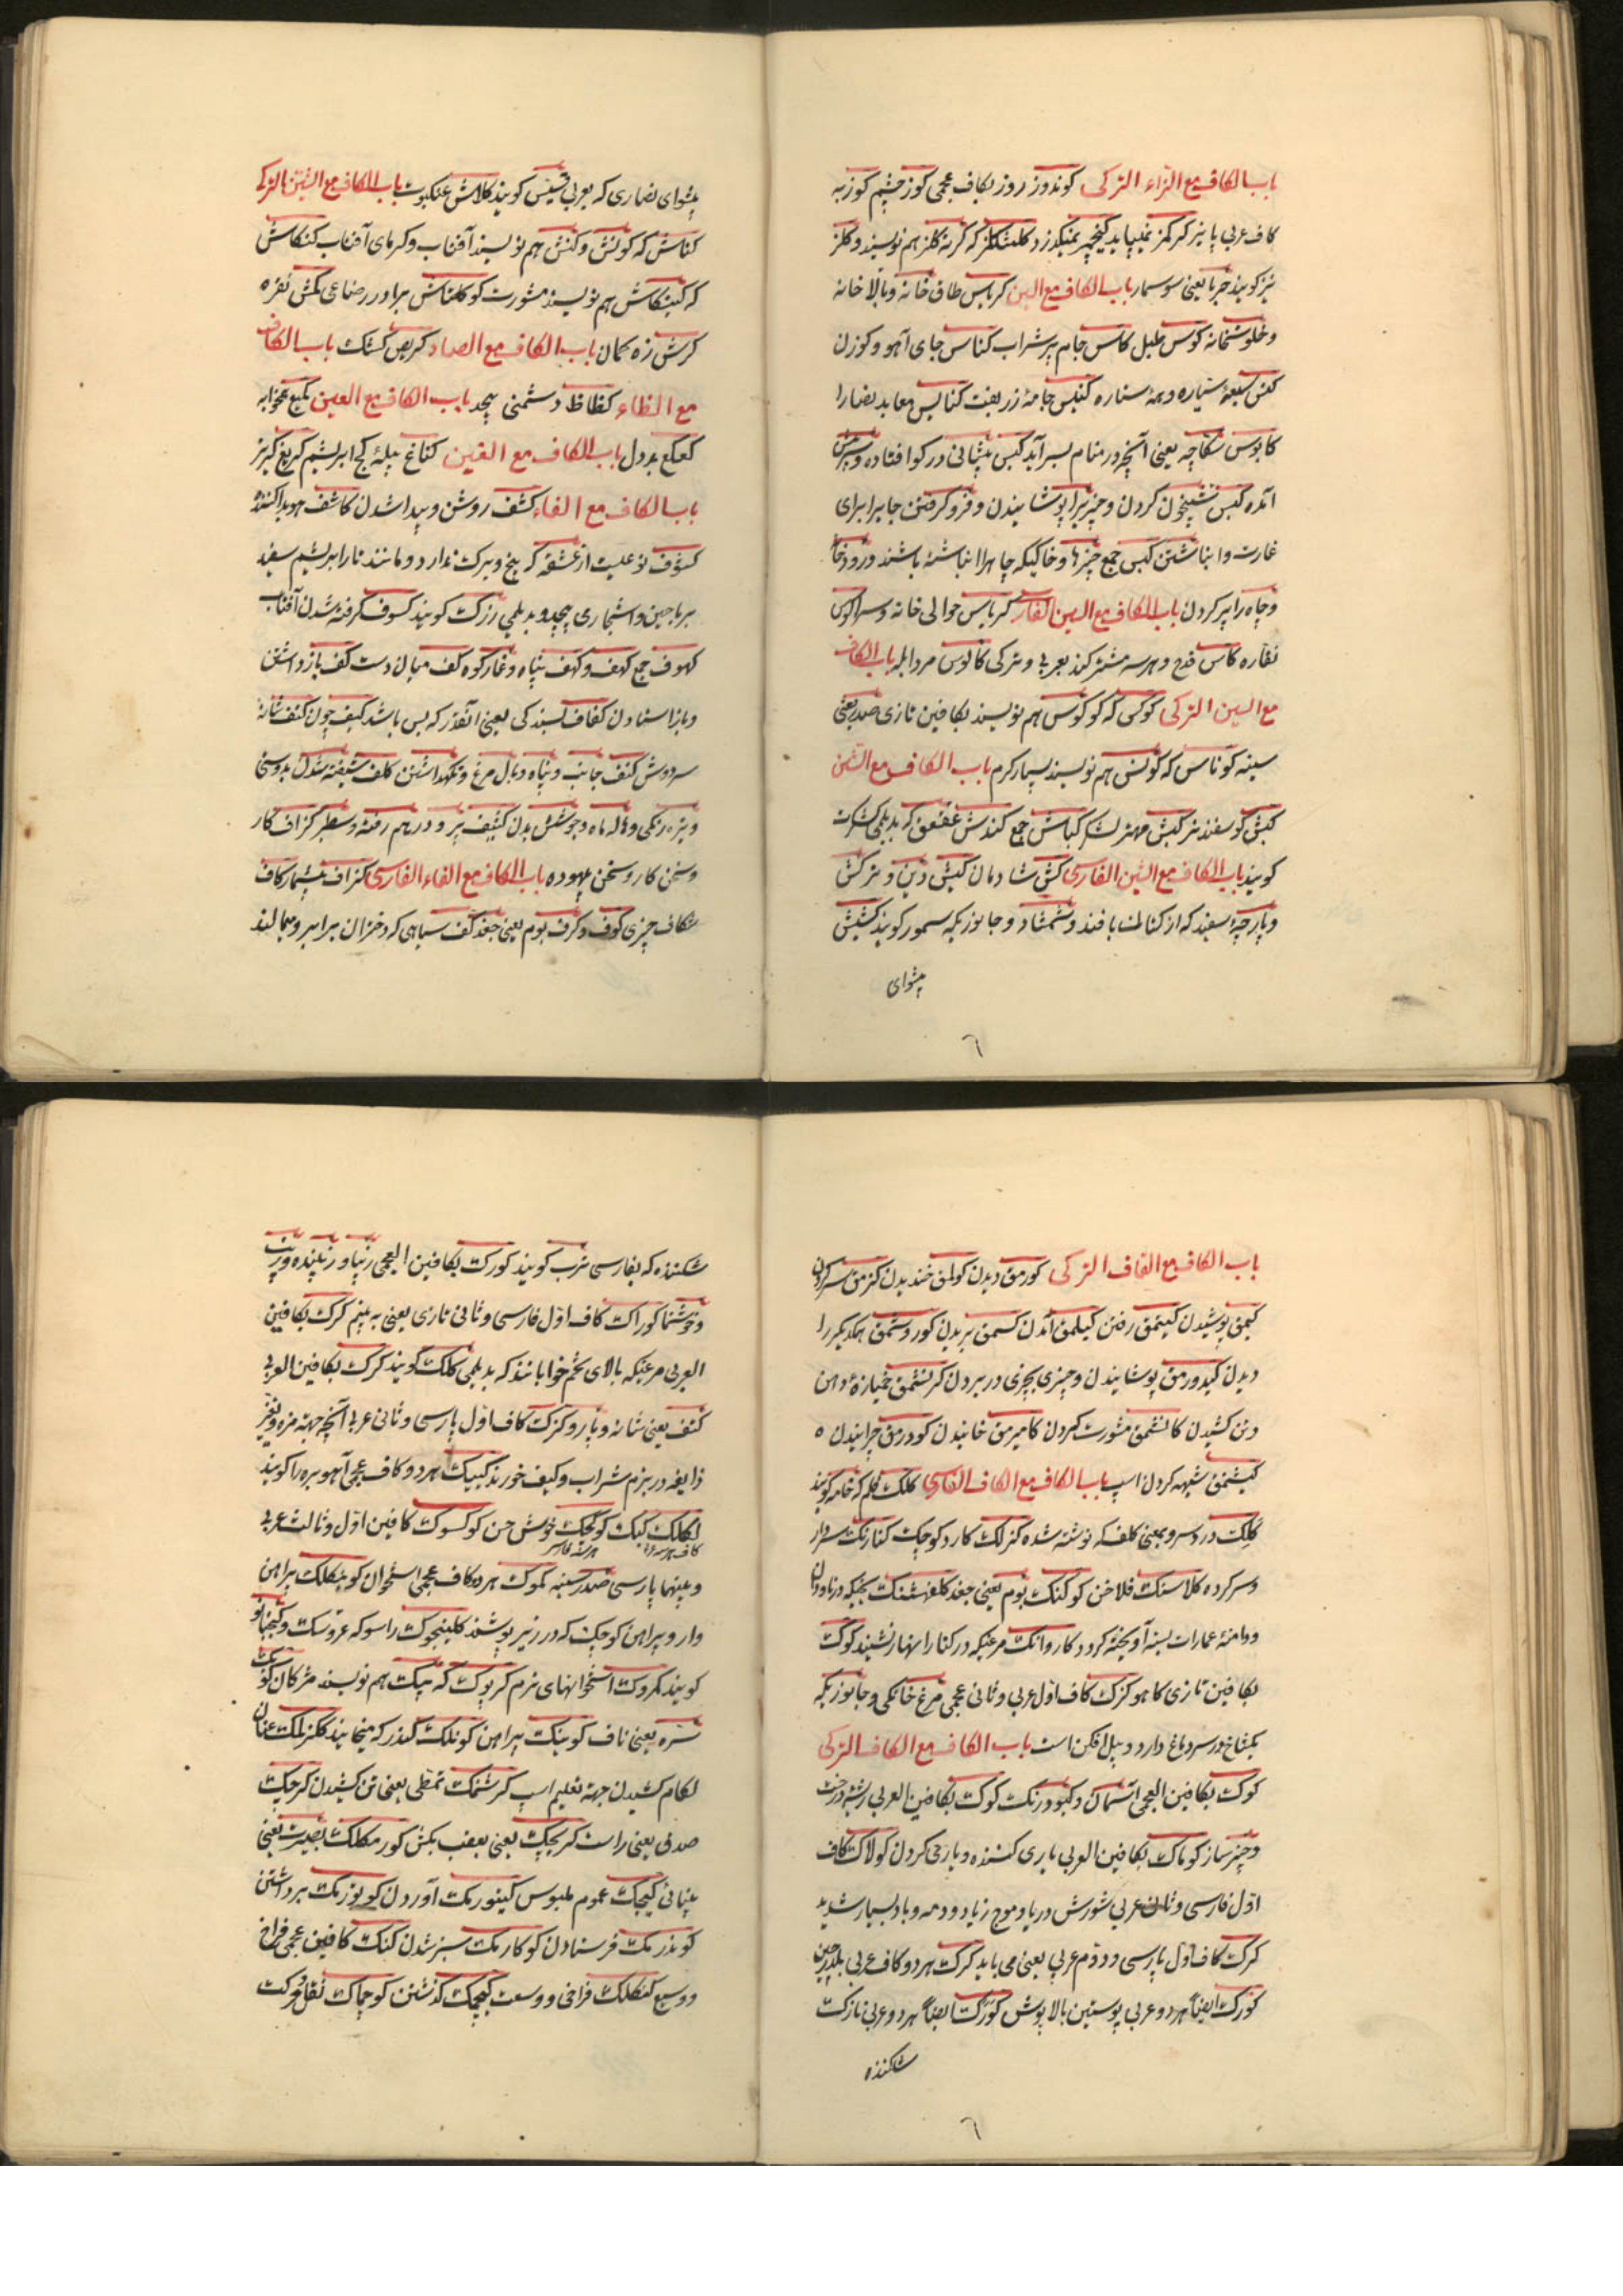 باب الکاف مع الزاء الترکی کوندوز روز بکاف عجمی کوز چشم کوز به
کاف عربی پائیز کیرکمز نمیپاید کیچمز نمیگذرد کلمشکلز که کرنه کلز هم نویسند و کلز
نیز کویند حربا یعنی سوسمار باب الکاف مع السین کریاس طاق خانه و بالا خانه
و خلوتخانه کوس طبل کاس جام پر شراب کناس جای آهو و کوزن
کنس سبعهٔ سیاره و همه ستاره کنیس جامهٔ زربفت کنایس معابد نصارا
کابوس سکاچه یعنی آنچه در منام بسر آید کبس پیشانی در کو افتاده و سر پیش
آمده کبس شبیخون کردن و چیزیرا پوشانیدن و فرو کرفتن جایرا برای
غارت و انباشتن کبس جمع چیزها و خاکیکه چاهرا انباشته باشند و رودخا
و چاه را پر کردن باب الکاف مع السین الفارسی کریاس حوالی خانه و سرا کوس
نقاره کاس قدح و هر سه مشترکند بعربی و ترکی کالوس مرد ابله باب الکاف
مع السین الترکی کوکس که کوکوس هم نویسند بکافین تازی صدر یعنی
سینه کوناس که کونس هم نویسند بسیار کرم باب الکاف مع الشین
کبش کوسفند نر کبش مهتر لشکر کباش جمع کندش عقعق که بدیلمی کشکرت
کویند باب الکاف مع الشین الفارسی کش شادمان کیش دین و ترکش
و پارچهٔ سفید که از کتان بافند و شمشاد و جانوریکه سمور کویند کشیش
پیشوای
پیشوای نصاری که بعربی قسیس کویند کلاش عنکبوت باب الکاف مع الشین الترکی
کناش که کونش و کنش هم نویسند آفتاب و کرمای آفتاب کنکاش
که کینکاش هم نویسند مشورت کوکلتاش برادر رضاعی کمش نقره
کرش زه کمان باب الکاف مع الصاد کریص کشک باب الکاف
مع الظاء کظاظ دشمنی بیحد باب الکاف مع العین کمیع همخوابه
کعکع بددل باب الکاف مع الغین کناغ پیلهٔ کج ابریشم کریغ کریز
باب الکاف مع الفاء کشف روشن و پیدا شدن کاشف هویدا کننده
کشوف نوعیست از عشقه که بیخ و برک ندارد و مانند تار ابریشم سفید
بریاحین و اشجار می پیچد و بدیلمی رزک کویند کسوف کرفته شدن آفتاب
کهوف جمع کهف و کهف پناه و غار کوه کف میان دست کف بازداشتن
و باز استادن کفاف بسندکی یعنی آنقدر که بس باشد کیف چون کتف شانه
سردوش کنف جانب و پناه و بال مرغ و نکهداشتن کلف شیفته شدن بدوستی
و تیره رنکی و هاله ماه و جوشش بدن کثیف پر و در هم رفته و سطبر کزاف کار
و سخن کار و سخن بیهوده باب الکاف مع الفاء الفارسی کزاف بیشمار کاف
شکاف چیزی کوف و کرف بوم یعنی جغد کف سیاهی که دختران بر ابرو میمالند
باب الکاف مع القاف الترکی کورمق دیدن کولمق خندیدن کزمق سیر کردن
کیمق پوشیدن کیتمق رفتن کیلمق آمدن کسمق بریدن کوروشمق همدیکر را
دیدن کیدورمق پوشانیدن و چیزی بچیزی در بردن کرنشمق خمیازهٔ دهن
و تن کشیدن کانشمق مشورت کردن کامیرمق خائیدن کودرمق چرانیدن
کیشنمق شیهه کردن اسپ باب الکاف مع الکاف الفارسی کلک قلم که خامه کویند
کلک درد سر و بمعنی کلف که نوشته شده کزلک کارد کوچک کنارنک سردار
و سر کرده کلاسنک فلاخن کوکنک بوم یعنی جغد کلفهشنک یخیکه در ناودان
و دامنهٔ عمارات بسته آویخته کردد کاروانک مرغیکه در کنار انهار نشیند کوک
بکافین تازی کاهو کزک کاف اول عربی و ثانی عجمی مرغ خانکی و جانوریکه
یکشاخ در سر دماغ دارد و پیل افکن است باب الکاف مع الکاف الترکی
کوک بکافین العجمی آسمان و کبود رنک کوک بکافین العربی ریشهٔ درخت
و چیز ساز کوماک بکافین العربی یاری کننده و یارمی کردن کولاک کاف
اول فارسی و ثانی عربی شورش دریا و موج زیاد و دمه و باد بسیار شدید
کرک کاف اول پارسی و دوم عربی یعنی می باید کرک هر دو کاف عربی بلدرچین
کورک ایضاً هر دو عربی پوستین بالاپوش کورک ایضاً هر دو عربی نازک
شکننده
شکننده که بفارسی ترب کویند کورک بکافین العجمی زیبا و زیبنده و زینت
و خوشنما کوراک کاف اول فارسی و ثانی تازی یعنی به بینم کرک بکافین
العربی مرغیکه بالای تخم خوابانند که بدیلمی کلک کویند کرک بکافین العربی
کتف یعنی شانه و پارو کزک کاف اول پارسی و ثانی عربی آنچه جهة مزه و تغییر
ذایقه در بزم شراب و کیف خورند کییک هر دو کاف عجمی آهو بره را کویند
لکلک کبک کوکچک خوش حن کوکسوک کافین اول و ثالث عربی
و پینها پارسی صدر سینه کموک هر دو کاف عجمی استخوان کوینکلک پیراهن
وار و پیراهن کوچک که در زیر پوشند کلینجوک راسو که عروسک و کیجبانو
کویند کمروک استخوانهای نرم کرپوک که پیک هم نویسند مژکان کوبک
سره یعنی ناف کوینک پیراهن کونلک کندر که میخایند کلکز لمک عنان
لکام کشیدن جهة تعلیم اسپ کرشمک تمطی یعنی تن کشیدن کرچیک
صدق یعنی راست کریچک یعنی بعقب بکش کورمکلک بصیرت یعنی
بینائی کیچک عموم ملبوس کیتورمک آوردن کوتورمک برداشتن
کوندرمک فرستادن کوکارمک سبز شدن کنک کافین عجمی فراخ
و وسیع کنکلک فراخی و وسعت کیچمک کذشتن کوچماک نقل و حرکت